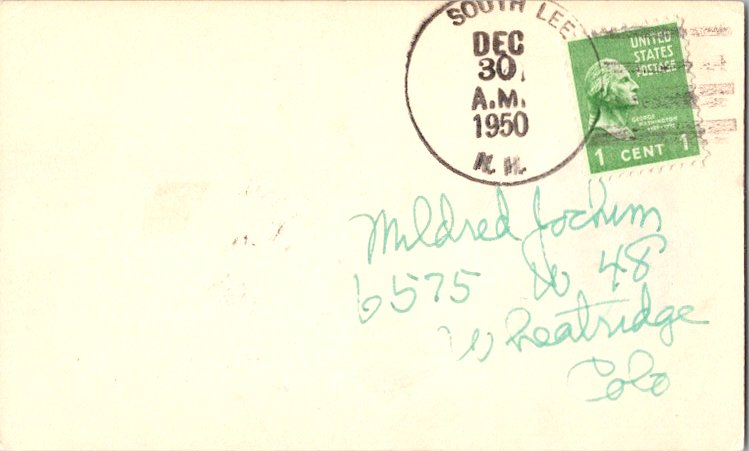 SOUTH LEE
DEC
30
A.M.
1950
N.H.
UNITED
STATES
POSTAGE
GEORGE
WASHINGTON
1 CENT 1
Mildred Jochim
6575 W 48
Wheatridge
Colo